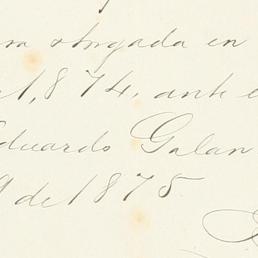 otorgada en
1,874, ante
Eduardo Galan
9 de 1875